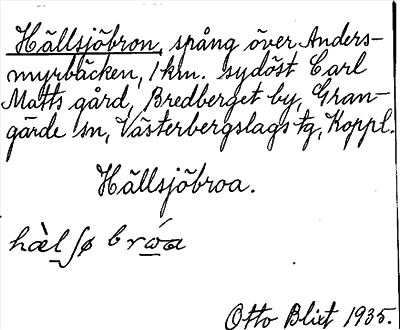 Hällsjöbron, spång över Anders-
myrbäcken, 1 km. sydöst Carl
Matts gård, Bredberget by, Gran-
gärde sn, Västerbergslags tg, Koppl.
Hällsjöbroa.
hæ̀lʃø brẃa
Otto Blixt 1935.